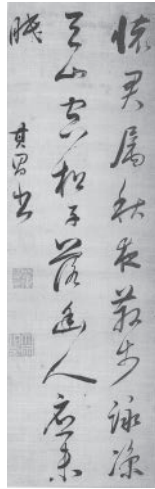 懷君屬秋夜散步詠涼
天山空松子落幽人應未
眠 其昌書